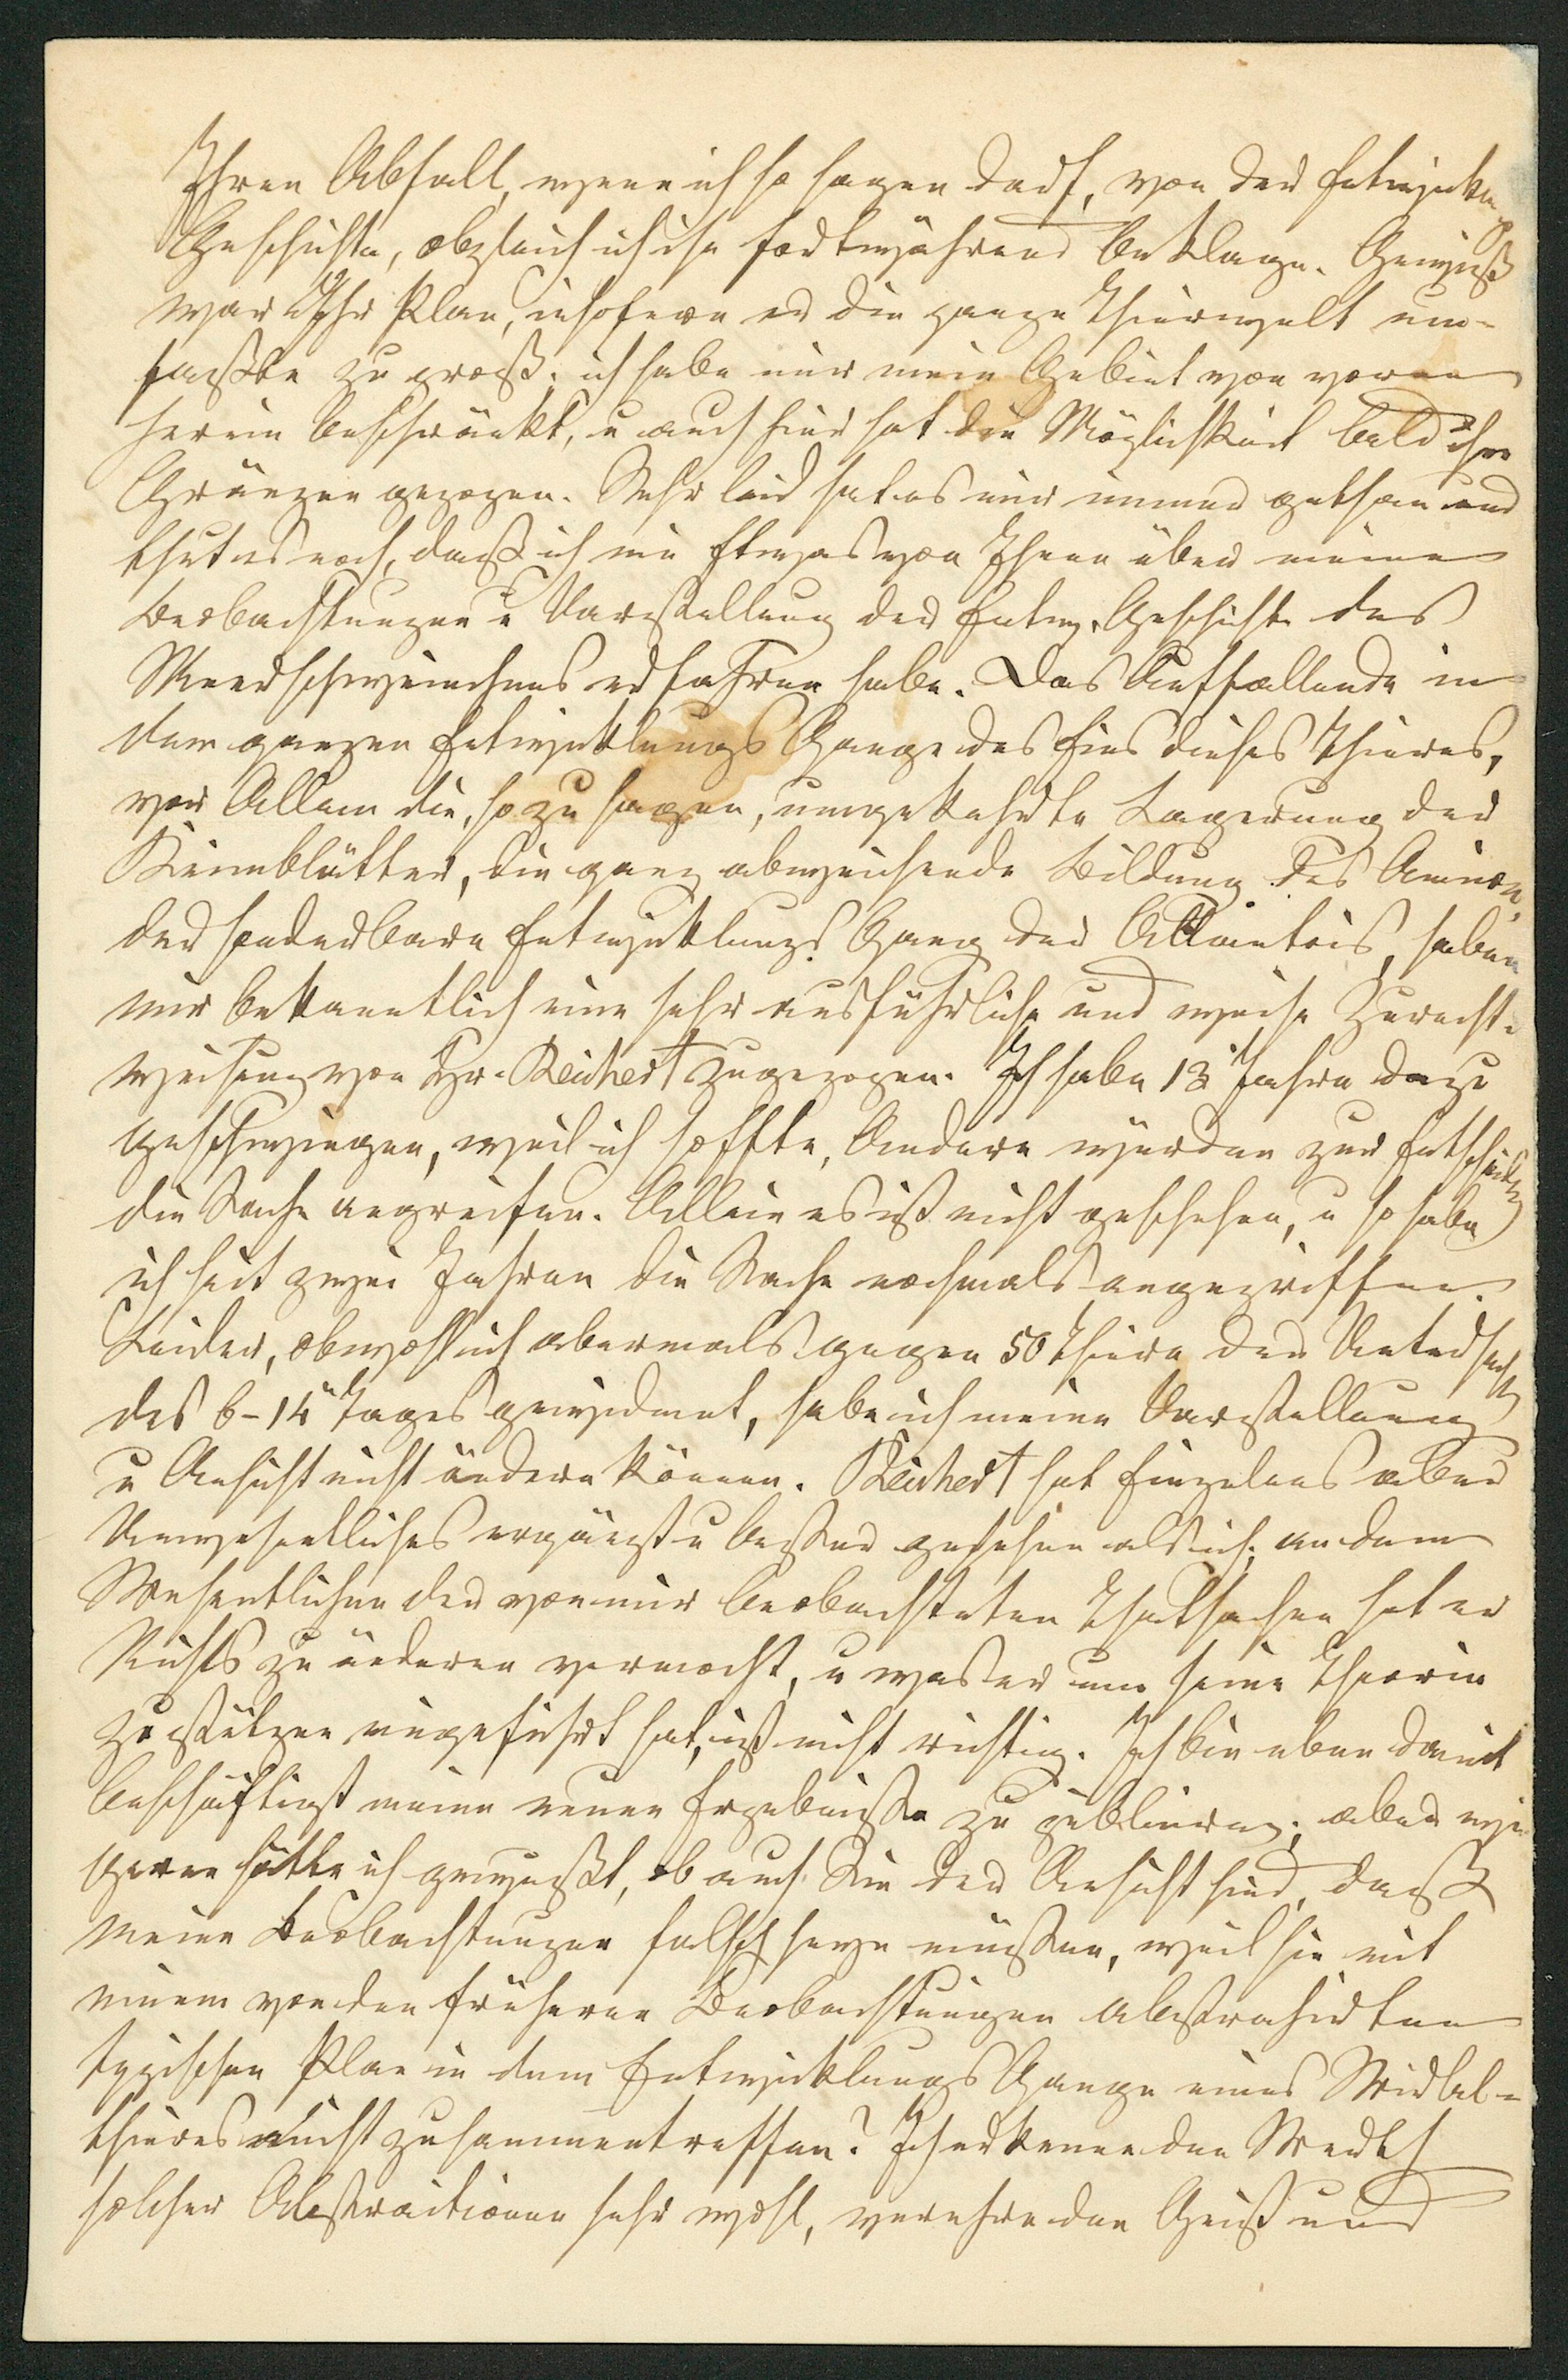 Ihren Abfall, wenn ich so sagen darf, von der Entwicklungs
Geschichte, obgleich ich ihn fortwährend beklage. Gewiß
war Ihr Plan, insofern er die ganze Thierwelt um-
faßte zu groß; ich habe mir mein Gebiet von vorne
herein beschränkt, u auch hier hat die Möglichkeit bald ihre
Gränzen gezogen. Sehr leid hat es mir immer gethan und
thut es noch, daß ich nie Etwas von Ihnen über meine
Beobachtungen u Darstellung der Entw. Geschichte des
Meerschweinchens erfahren habe. Das Auffallende in
dem ganzen Entwicklungs Gange des Eies dieses Thieres,
vor Allem die, so zu sagen, umgekehrte Lagerung der
Keimblätter, die ganz abweichende Bildung des Amnion,
der sonderbare Entwicklungs Gang der Allantois, haben
mir bekanntlich eine sehr ausführliche und weise Zurecht-
weisung von Hr. Reichert zugezogen. Ich habe 13 Jahre dazu
geschwiegen, weil ich hoffte, Andere würden zur Entscheidung
die Sache angreifen. Allein es ist nicht geschehen, u so habe
ich seit zwei Jahren die Sache nochmals angegriffen.
Leider, obwohl ich abermals gegen 50 Thiere der Untersuch
des 6-14n Tages gewidmet, habe ich meine Darstellung
u Ansicht nicht ändern können. Reichert hat Einzelnes aber
Unwesentliches ergänzt u besser gesehen als ich; an dem
Wesentlichen der von mir beobachteten Thatsachen hat er
Nichts zu änderen vermocht, u was er um seine Theorie
zu stützen eingeführt hat, ist nicht richtig. Ich bin eben damit
beschäftigt meine neuen Ergebnisse zu publiciren; aber wie
gerne hätte ich gewußt, ob auch Sie der Ansicht sind, daß
meine Beobachtungen falsch seyn müssen, weil sie mit
einem von den früheren Beobachtungen abstrahirten
typischen Plan in dem Entwicklungs Gange eines Wirbel-
thieres nicht zusammentreffen? Ich erkenne den Werth
solcher Abstractionen sehr wohl, verehre den Geist und